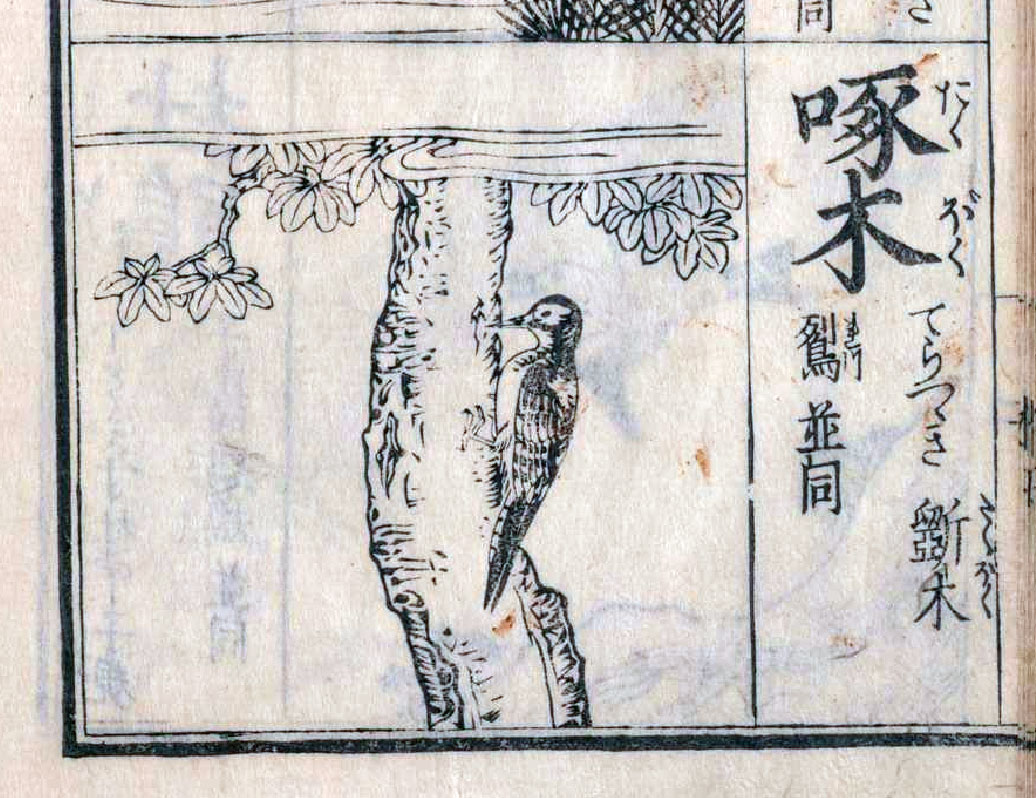 き
同
啄木
たくぼく
てらつゝき
斲木
鴷
れつ
並同